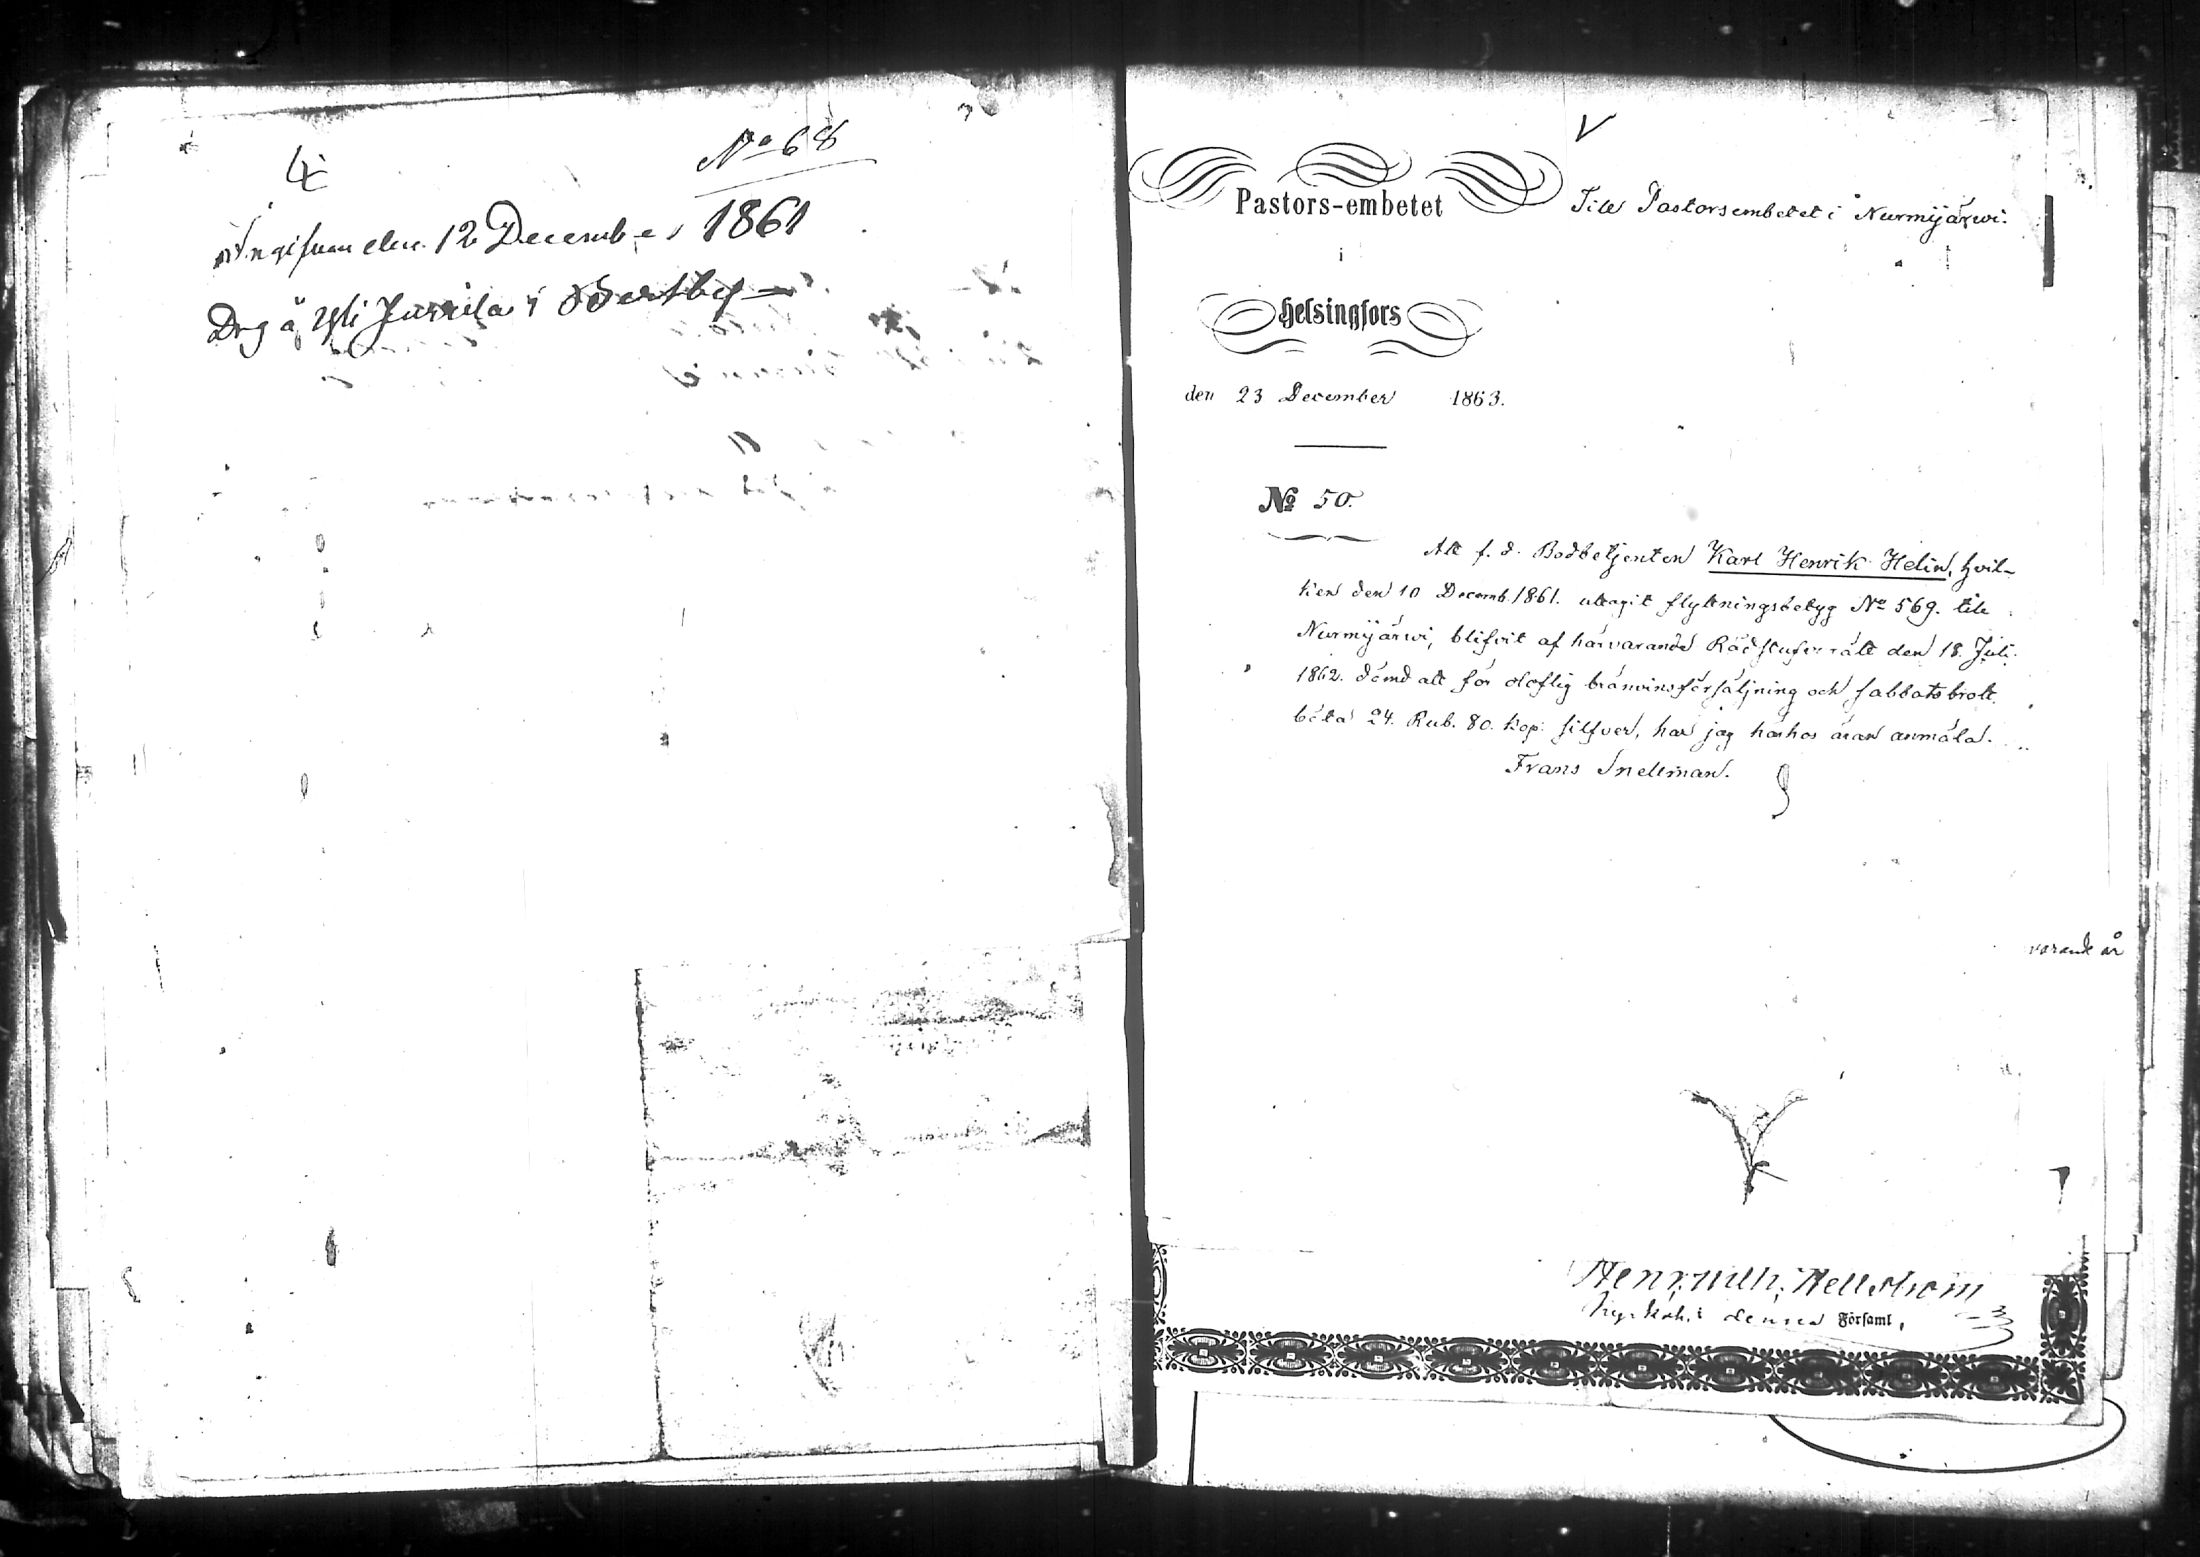 No 68
Angifven den 12 December 1861
Drg å Yli Jussila i
V
Pastors-embetet
i
Helsingfors
den 23 December 1863.
№ 50.
Till Pastorsembetet i Nurmijärwi.
Att f. d. Bodbetjenten Karl Henrik Helin, hvil-
ken den 10 Decemb. 1861. uttagit flyttningsbetyg No 569. till
Nurmijärwi, blifvit af härvarande Rådstufvurätt den 18. Juli
1862. dömd att för olaflig bränvinsförsäljning och sabbatsbrott
böta 24. Rub. 80. kop. silfver, har jag härhos äran anmäla.
Frans Snellman.
varande år
Henr. Wilh. Hellström
Kyrkoh. i denna Församl.